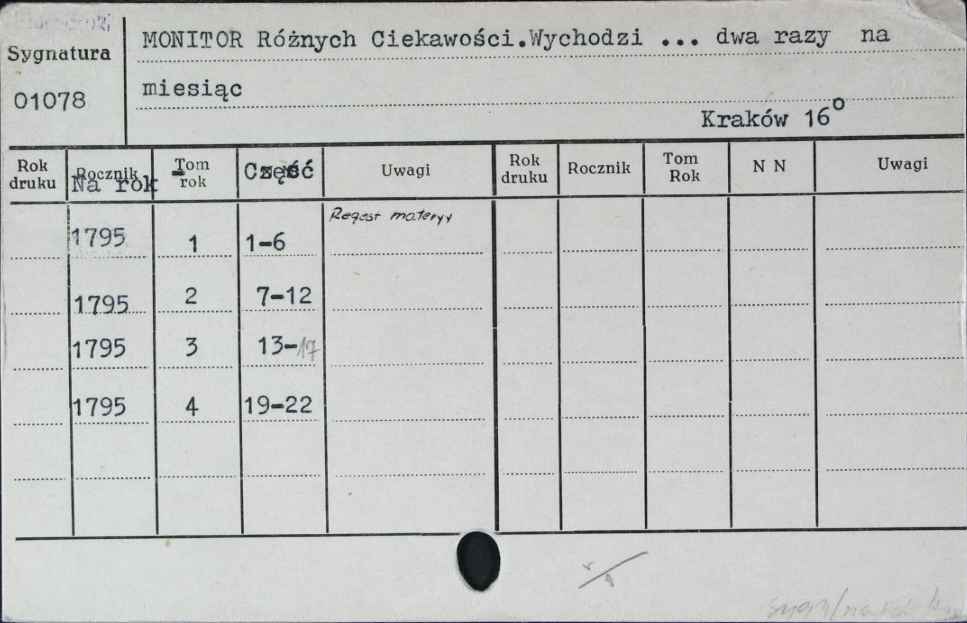 Sygnatura
01078
MONITOR Różnych Ciekawości.Wychodzi ... dwa razy na
miesiąc
Kraków 16°
Rok druku Rocznik Na rok Tom rok Część Uwagi Rok druku Rocznik Tom Rok N N Uwagi
1795 1 1-6 Regest materyy
1795 2 7-12
1795 3 13-17
1795 4 19-22